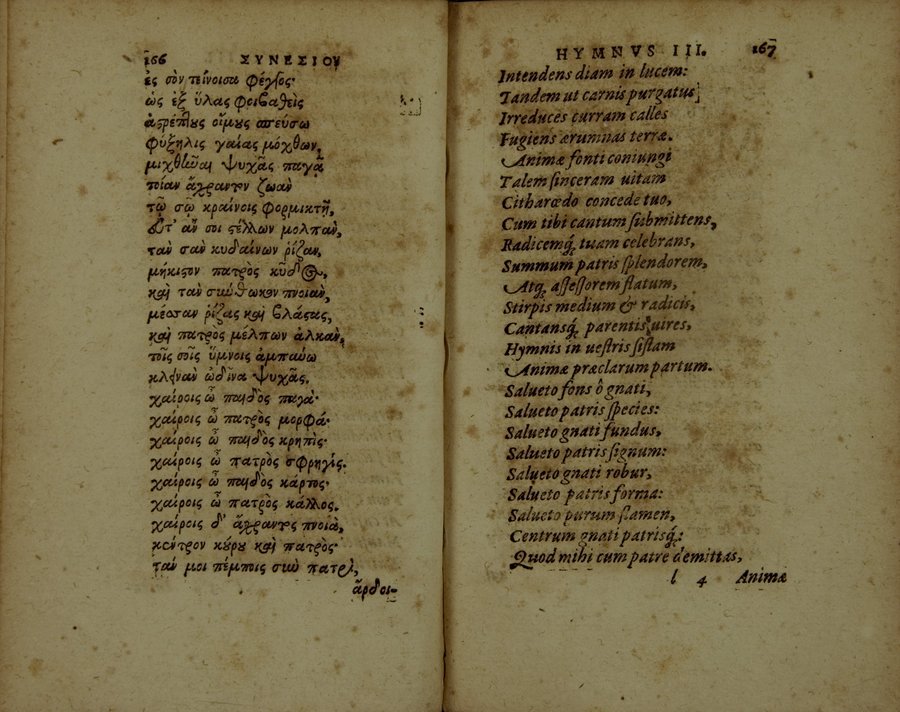 166 ΣΥΝΕΣΙΟΥ
ἐς σὸν τείνοισα φέγγος·
ὡς ἐξ ὕλας φοιβαθεὶς
ἀστρέπτους οἴμους σπεύσω
φύξηλις γαίας μόχθων,
μιχθῆναι ψυχᾶς παγᾷ
ποίαν ἄχραντον ζωὰν
τῷ σῷ κραίνοις φορμικτῇ,
ὅτ' ἄν σοι στέλλων μολπὰν,
τὰν σὰν κυδαίνων ῥίζαν,
μήκιστον πατρὸς κῦδος,
καὶ τὰν σύνθωκον πνοιὰν,
μέσσαν ῥίζας καὶ βλάστας,
καὶ πατρὸς μέλπων ἀλκὰν,
τοῖς σοῖς ὕμνοις ἀμπαύω
κλεινὰν ὠδῖνα ψυχᾶς.
χαίροις ὦ παιδὸς παγά·
χαίροις ὦ πατρὸς μορφά·
χαίροις ὦ παιδὸς κρηπίς·
χαίροις ὦ πατρὸς σφρηγίς.
χαίροις ὦ παιδὸς κάρτος·
χαίροις ὦ πατρὸς κάλλος.
χαίροις δ' ἄχραντος πνοιὰ,
κέντρον κύρου καὶ πατρός·
τάν μοι πέμποις σὺν πατρὶ,
ἄρδοι-
HYMNVS III. 167
Intendens diam in lucem:
Tandem ut carnis purgatus
Irreduces curram calles
Fugiens ærumnas terræ.
Animæ fonti coniungi
Talem sinceram uitam
Citharœdo concede tuo,
Cum tibi cantum submittens,
Radicemq; tuam celebrans,
Summum patris splendorem,
Atq; assessorem flatum,
Stirpis medium & radicis,
Cantansq; parentis uires,
Hymnis in uestris sistam
Animæ præclarum partum.
Salueto fons ô gnati,
Salueto patris species:
Salueto gnati fundus,
Salueto patris signum:
Salueto gnati robur,
Salueto patris forma:
Salueto purum flamen,
Centrum gnati patrisq;:
Quod mihi cum patre demittas,
l 4 Animæ